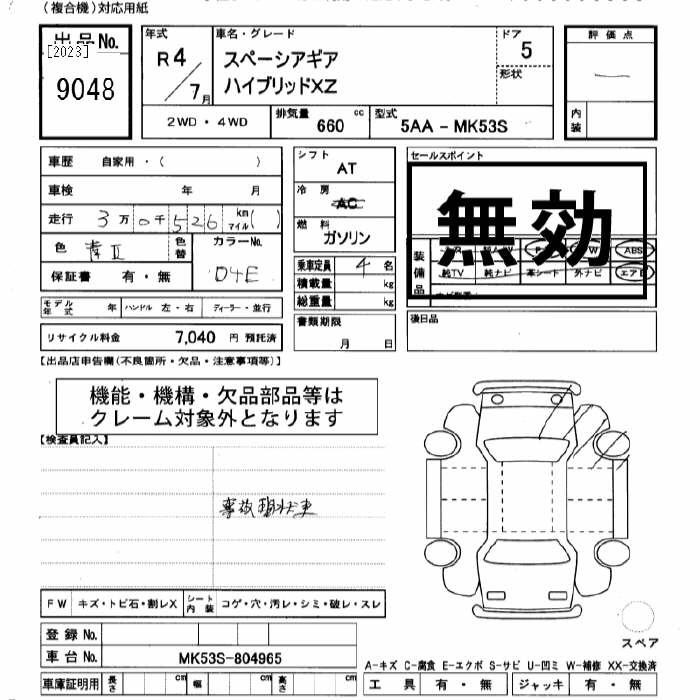 （複合機）対応用紙
出品No.
[2023]
9048
年式
R4／7月
車名・グレード
スペーシアギア
ハイブリッドXZ
ドア
5
形状
評価点
内装
2WD・4WD
排気量 660 cc
型式 5AA－MK53S
車歴 自家用・（ ）
車検 年 月
走行 3万0千526 km マイル( )
色
色替
カラーNo.
D4E
保証書 有・無
シフト
AT
冷房
AC
燃料
ガソリン
乗車定員 4名
積載量 kg
総重量 kg
セールスポイント
無効
装備品
ABS
純TV 純ナビ 本シート 外ナビ エアB
モデル年式 年 ハンドル 左・右 ディーラー・並行
リサイクル料金 7,040 円 預託済
書類期限
月 日
後日品
【出品店申告欄（不良箇所・欠品・注意事項等）】
機能・機構・欠品部品等は
クレーム対象外となります
【検査員記入】
事故現状車
FW キズ・トビ石・割レX シート内装 コゲ・穴・汚レ・シミ・破レ・スレ
登録No.
車台No. MK53S-804965
車庫証明用 長さ cm 幅 cm 高さ cm
スペア
A-キズ C-腐食 E-エクボ S-サビ U-凹ミ W-補修 XX-交換済
工具 有・無 ジャッキ 有・無